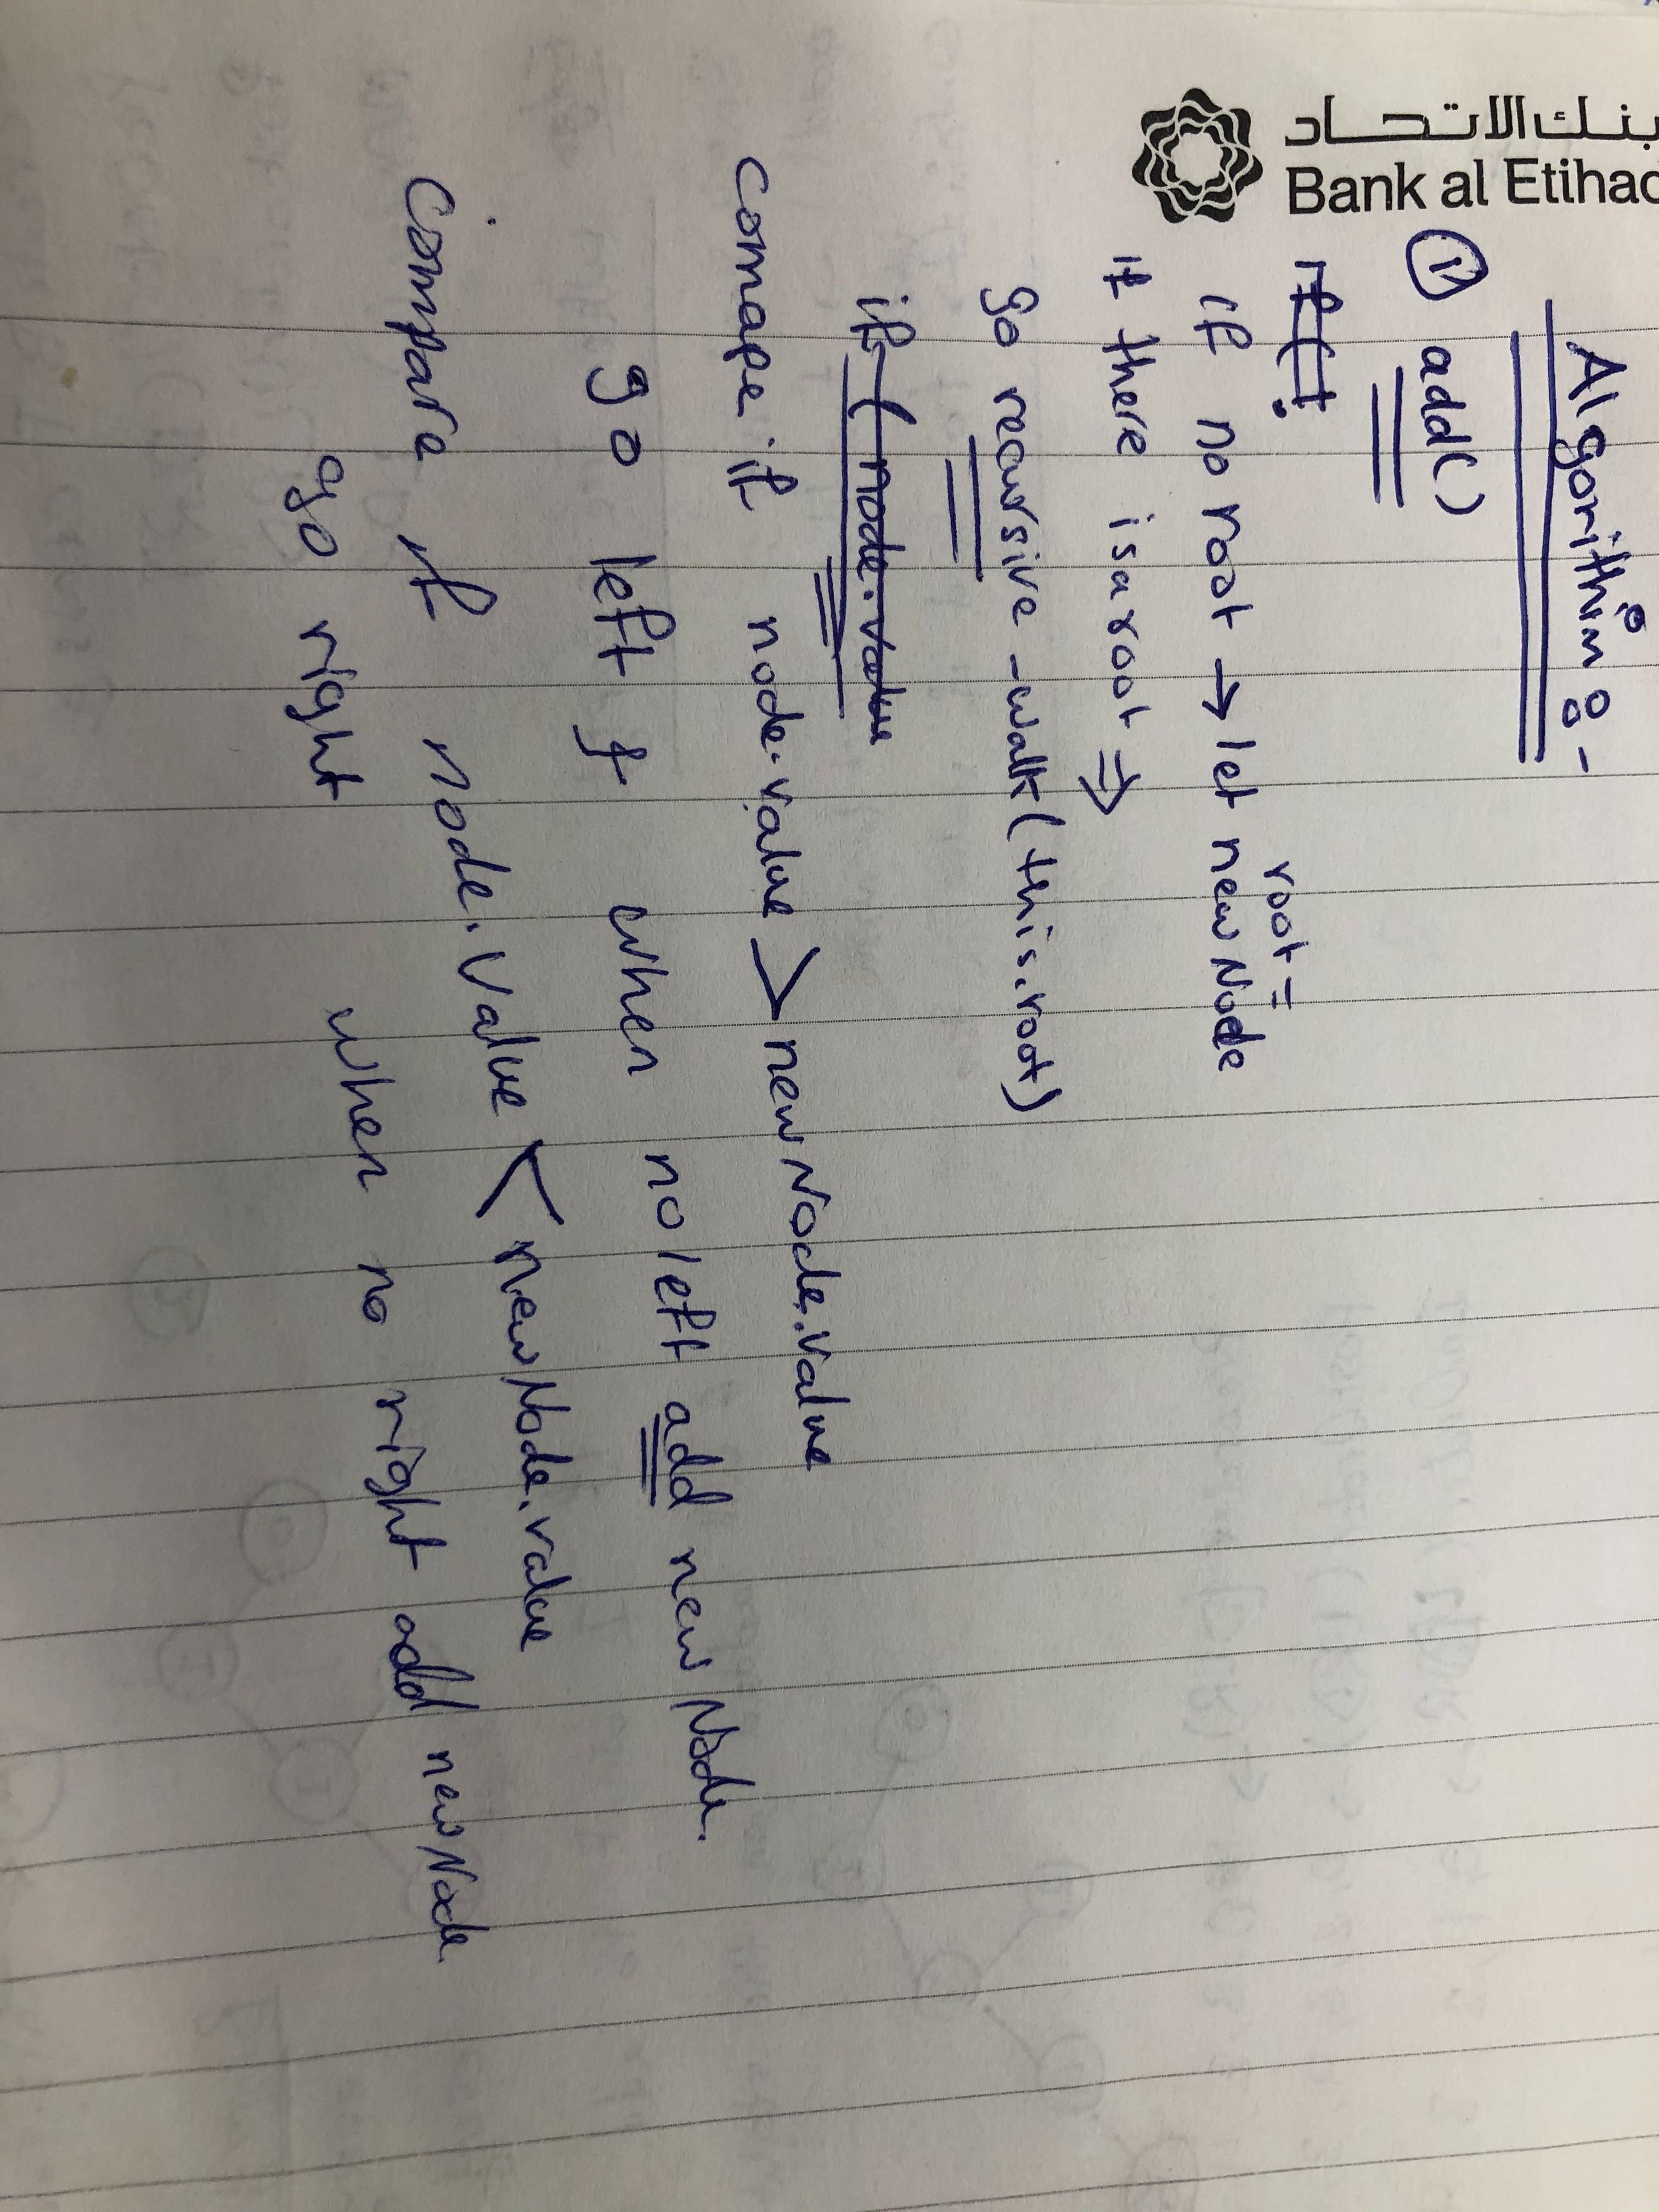 بنك الاتحاد
Bank al Etihad
Algorithim :-
① add()
if no root → let newNode
root =
if there is a root ⇒
go recursive - walk (this.root)
if (node.value
comape if node.value > newNode.value
go left & when no left add newNode.
Compare if node.value < newNode.value
go right when no right add newNode